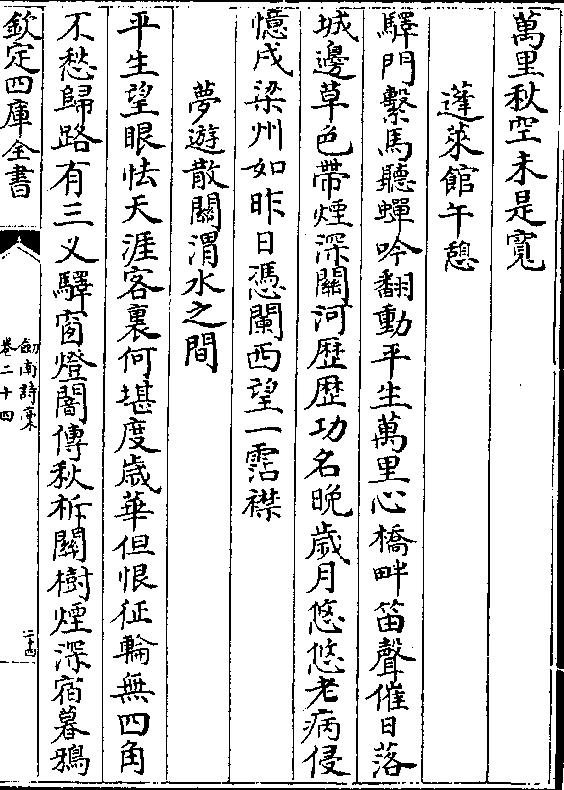 萬里秋空未是寬
蓬萊館午憩
驛門繫馬聽蟬吟翻動平生萬里心橋畔笛聲催日落
城邊草色帶煙深關河歴歴功名晚歲月悠悠老病侵
憶戍梁州如昨日憑闌西望一霑襟
夢遊散關渭水之間
平生望眼怯天涯客裏何堪度歲華但恨征輪無四角
不愁歸路有三乂驛窗燈闇傳秋柝關樹煙深宿暮鴉
欽定四庫全書
劍南詩藁
卷二十四
二十四